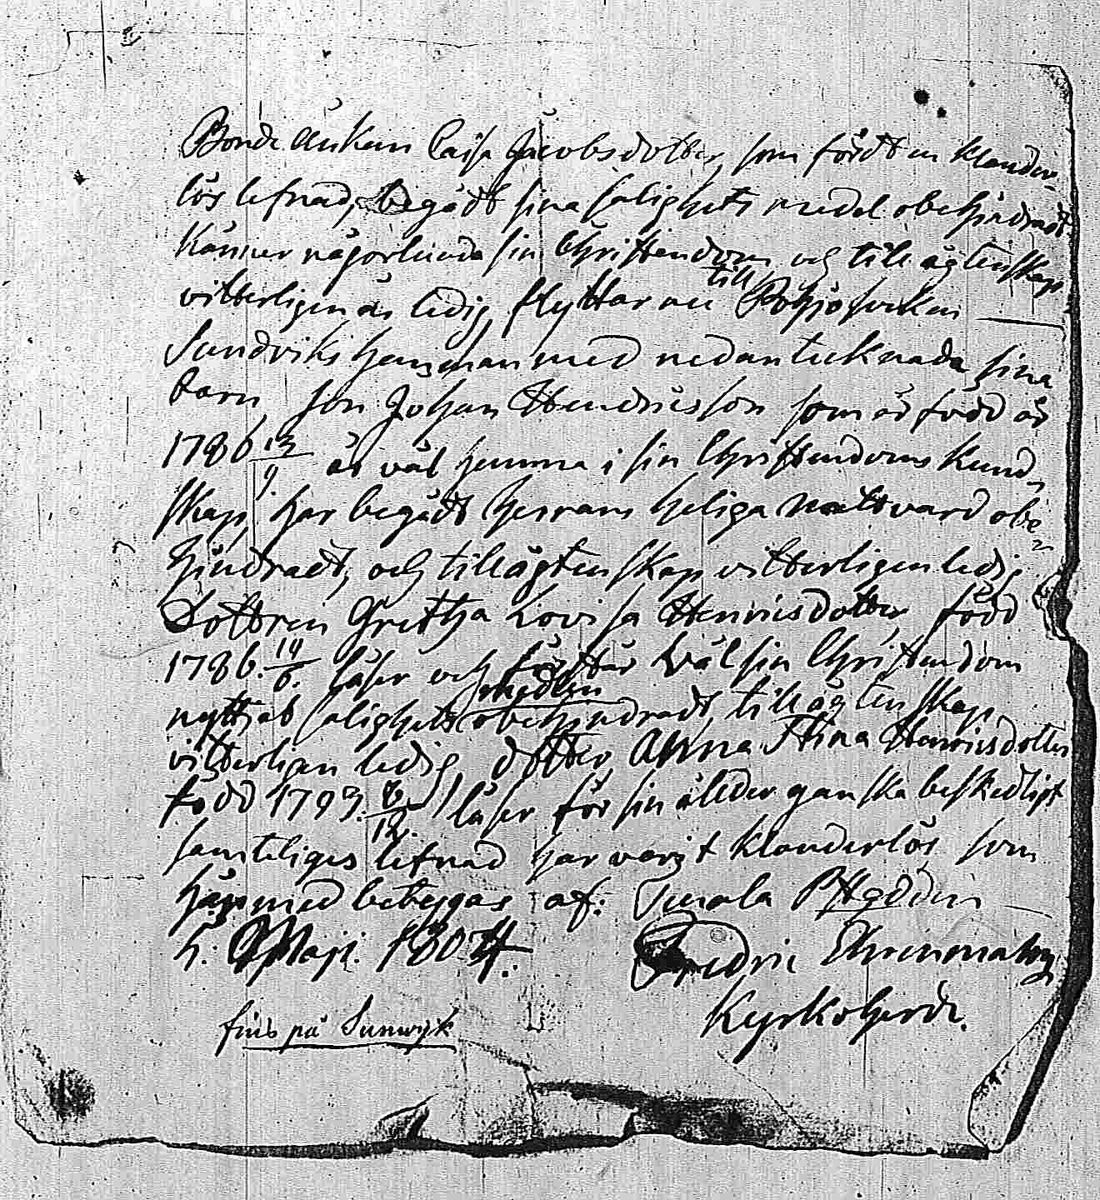 Bonde änkan Caisa Jacobsdotter, som fördt en klander-
lös lefnad, begådt sina salighets medel obehindradt
känner någorlunda sin Christendom och till ägtenskap
vitterligen är ledig, flyttar nu till Pohjo soken
Sundviks hemman med nedantecknade sina
barn, son Johan Hendricsson som är född år
1786 13/9 är väl hemma i sin Christendoms kund-
skap, har begådt herrans heliga nattvard obe-
hindradt, och till ägtenskap vitterligen ledig
Dottren Gretha Lovisa Henricsdotter född
1786. 14/6. läser och förstår väl sin Christendom
nyttjat salighets medlen obehindradt, till ägtenskap
vitterligen ledig, dotter Anna Stina Henricsdotter
född 1793. 6/12. läser för sin ålder ganska beskedligt
samteliges lefnad har varit klanderlös som
härmed betygas af: Prgdden
d. Maji. 1804. Fredric Ehrenmalm
Kyrkoherde.
fins på Sunwyk